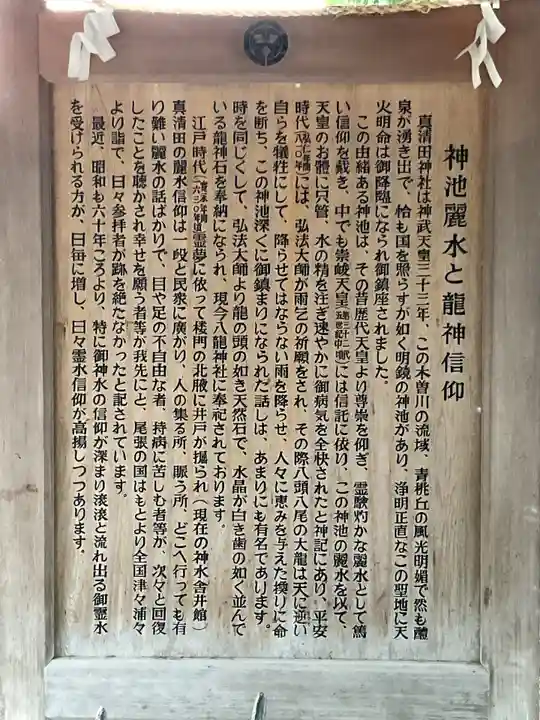 神池麗水と龍神信仰
真清田神社は神武天皇三十三年、この木曽川の流域、青桃丘の風光明媚で然も醴
泉が湧き出で、恰も国を照らすが如く明鏡の神池があり、浄明正直なこの聖地に天
火明命は御降臨になられ御鎮座されました。
この由緒ある神池は、その昔歴代天皇より尊崇を仰ぎ、霊験灼かな麗水として篤
い信仰を戴き、中でも崇峻天皇には信託に依り、この神池の麗水を以て、
天皇のお體に只管、水の精を注ぎ速やかに御病気を全快されたと神記にあり、平安
時代には、弘法大師が雨乞の祈願をされ、その際八頭八尾の大龍は天に逆い
自らを犠牲にして、降らせてはならない雨を降らせ、人々に恵みを与えた換りに命
を断ち、この神池深くに御鎮まりになられた話しは、あまりにも有名であります。
時を同じくして、弘法大師より龍の頭の如き天然石で、水晶が白き歯の如く並んで
いる龍神石を奉納になられ、現今八龍神社に奉祀されております。
江戸時代霊夢に依って楼門の北腋に井戸が掘られ（現在の神水舎井館）
真清田の麗水信仰は一段と民衆に廣がり、人の集る所、賑う所、どこへ行っても有
り難い麗水の話ばかりで、目や足の不自由な者、持病に苦しむ者等が、次々と回復
したことを聴かされ幸せを願う者等が我先にと、尾張の国はもとより全国津々浦々
より詣で、日々参拝者が跡を絶たなかったと記されています。
最近、昭和も六十年ころより、特に御神水の信仰が深まり淡淡と流れ出る御霊水
を受けられる方が、日毎に増し、日々霊水信仰が高揚しつつあります。